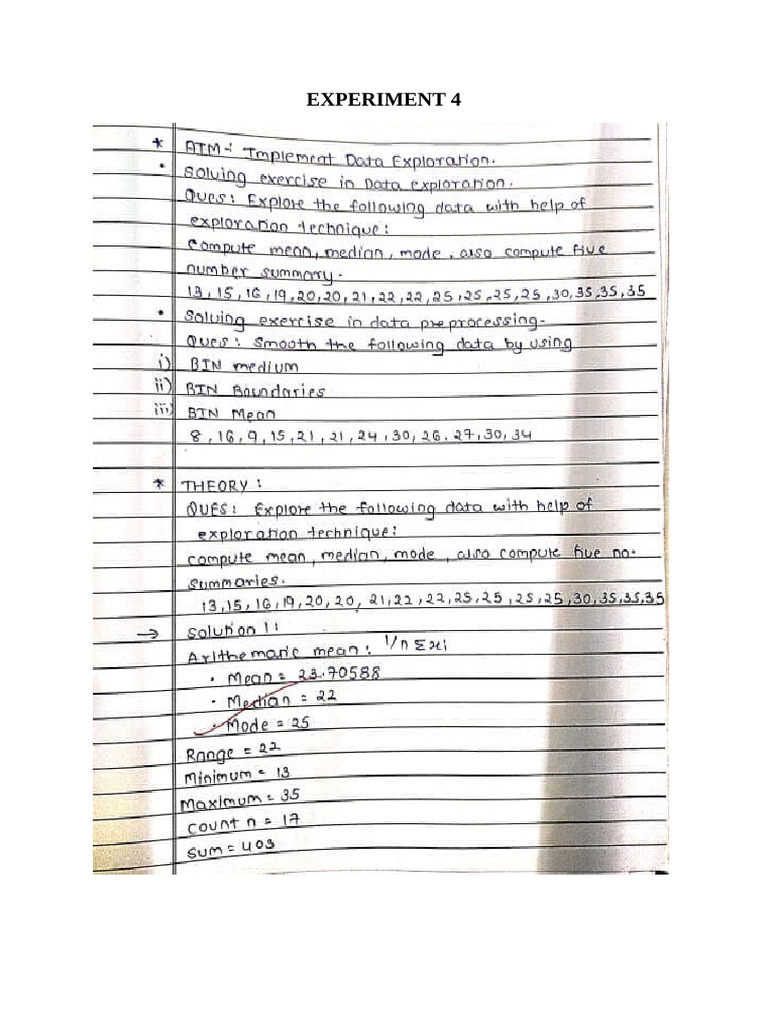 EXPERIMENT 4
* AIM-: Implement Data Exploration.
• Solving exercise in Data exploration.
Ques: Explore the following data with help of
exploration technique:
Compute mean, median, mode, also compute five
number summary.
13, 15, 16, 19, 20, 20, 21, 22, 22, 25, 25, 25, 25, 30, 35, 35, 35
• Solving exercise in data preprocessing.
Ques: Smooth the following data by using
i) BIN medium
ii) BIN Boundaries
iii) BIN Mean
8, 16, 9, 15, 21, 21, 24, 30, 26, 27, 30, 34
* THEORY:
QUES: Explore the following data with help of
exploration technique:
compute mean, median, mode, also compute five no.
summaries.
13, 15, 16, 19, 20, 20, 21, 22, 22, 25, 25, 25, 25, 30, 35, 35, 35
→ Solution 1:
Arithematic mean: 1/n Σxi
• Mean = 23.70588
• Median = 22
• Mode = 25
Range = 22
Minimum = 13
Maximum = 35
Count n = 17
Sum = 403